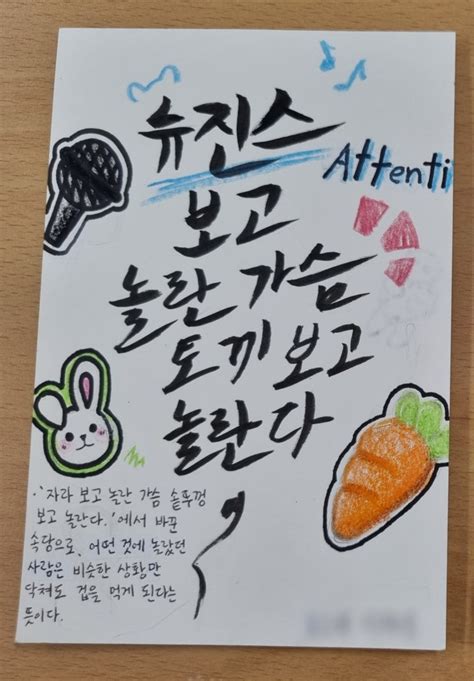 슈진스
Attenti
보고
놀란 가슴
토끼 보고
놀란다
·'자라 보고 놀란 가슴 솥뚜껑
보고 놀란다.'에서 바꾼
속담으로, 어떤 것에 놀랐던
사람은 비슷한 상황만
닥쳐도 겁을 먹게 된다는
뜻이다.